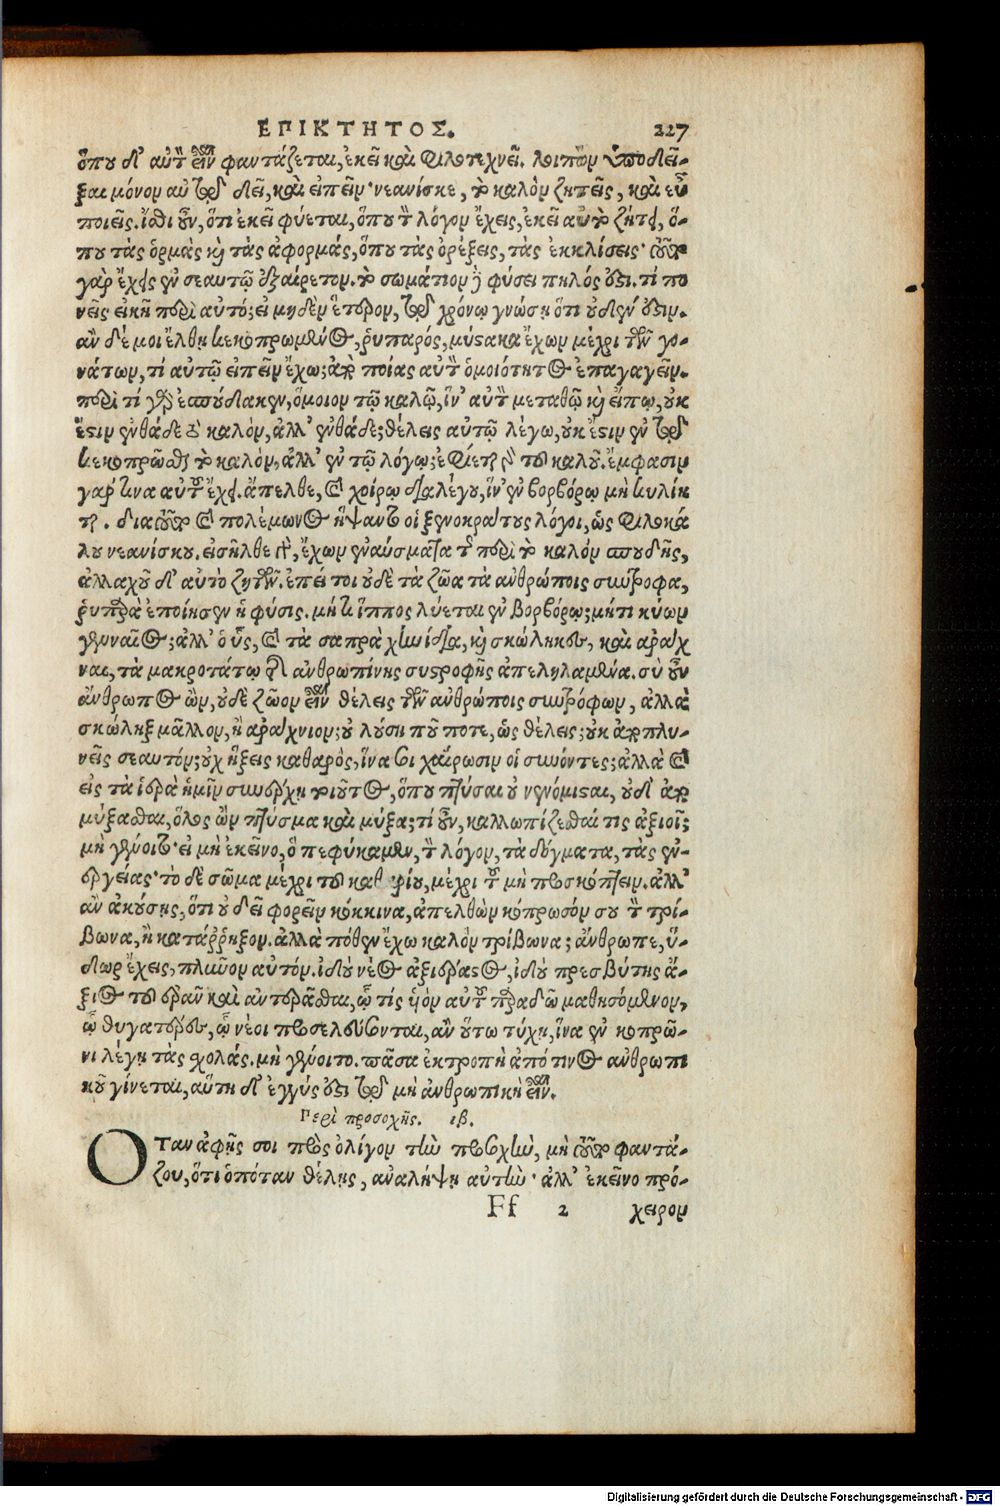 ΕΠΙΚΤΗΤΟΣ. 227
ὅπου δ' αὐτὸ εἶναι φαντάζεται, ἐκεῖ καὶ φιλοτεχνεῖ. λοιπὸν ὑποδεῖ-
ξαι μόνον αὐτῷ δεῖ, καὶ εἰπεῖν· νεανίσκε, τὸ καλὸν ζητεῖς, καὶ εὖ
ποιεῖς. ἴσθι οὖν, ὅτι ἐκεῖ φύεται, ὅπου τὸν λόγον ἔχεις, ἐκεῖ αὐτὸ ζήτει, ὅ-
που τὰς ὁρμὰς καὶ τὰς ἀφορμάς, ὅπου τὰς ὀρέξεις, τὰς ἐκκλίσεις· τοῦτο
γὰρ ἔχεις ἐν σεαυτῷ ἐξαίρετον. τὸ σωμάτιον δὲ φύσει πηλός ἐστι. τί πο
νεῖς εἰκῆ περὶ αὐτό; εἰ μηδὲν ἕτερον, τῷ χρόνῳ γνώσῃ ὅτι οὐδέν ἐστιν.
ἂν δέ μοι ἔλθῃ κεκοπρωμένος, ῥυπαρός, μύστακα ἔχων μέχρι τῶν γο-
νάτων, τί αὐτῷ εἰπεῖν ἔχω; ἀπὸ ποίας αὐτὸν ὁμοιότητος ἐπαγαγεῖν.
περὶ τί γὰρ ἐσπούδακεν, ὅμοιον τῷ καλῷ, ἵν' αὐτὸν μεταθῶ καὶ εἴπω, οὐκ
ἔστιν ἐνθάδε τὸ καλὸν, ἀλλ' ἐνθάδε; θέλεις αὐτῷ λέγω, οὐκ ἔστιν ἐν τῷ
κεκοπρῶσθαι τὸ καλὸν, ἀλλ' ἐν τῷ λόγῳ; ἐφίεται γὰρ τοῦ καλοῦ. ἔμφασιν
γάρ τινα αὐτοῦ ἔχει. ἄπελθε, καὶ χοίρῳ διαλέγου, ἵν' ἐν βορβόρῳ μὴ κυλίη
ται. διατοῦτο καὶ πολέμωνος ἥψαντο οἱ ξενοκράτους λόγοι, ὡς φιλοκά
λου νεανίσκου. εἰσῆλθε γὰρ, ἔχων ἐναύσματα τῆς περὶ τὸ καλὸν σπουδῆς,
ἀλλαχοῦ δ' αὐτὸ ζητῶν. ἐπεί τοι οὐδὲ τὰ ζῶα τὰ ἀνθρώποις σύντροφα,
ῥυπαρὰ ἐποίησεν ἡ φύσις. μήτι ἵππος λύεται ἐν βορβόρῳ; μήτι κύων
γενναῖος; ἀλλ' ὁ ὗς, καὶ τὰ σαπρὰ χηνίδια, καὶ σκώληκες, καὶ ἀράχ
ναι, τὰ μακροτάτω τῆς ἀνθρωπίνης συστροφῆς ἀπεληλαμένα. σὺ οὖν
ἄνθρωπος ὢν, οὐδὲ ζῶον εἶναι θέλεις τῶν ἀνθρώποις συντρόφων, ἀλλὰ
σκώληξ μᾶλλον, ἢ ἀράχνιον; οὐ λούσῃ ποῦ ποτε, ὡς θέλεις; οὐκ ἀποπλυ-
νεῖς σεαυτόν; οὐχ ἥξεις καθαρὸς, ἵνα σοι χαίρωσιν οἱ συνόντες; ἀλλὰ καὶ
εἰς τὰ ἱερὰ ἡμῖν συνέρχῃ τοιοῦτος, ὅπου πτύσαι οὐ νενόμισται, οὐδ' ἀπο
μύξασθαι, ὅλος ὢν πτύσμα καὶ μύξα; τί οὖν, καλλωπίζεσθαί τις ἀξιοῖ;
μὴ γένοιτο· εἰ μὴ ἐκεῖνο, ὃ πεφύκαμεν, τὸν λόγον, τὰ δόγματα, τὰς ἐν-
εργείας· τὸ δὲ σῶμα μέχρι τοῦ καθαρίου, μέχρι τοῦ μὴ προσκόπτειν. ἀλλ'
ἂν ἀκούσῃς, ὅτι οὐ δεῖ φορεῖν κόκκινα, ἀπελθὼν κόπρωσόν σου τὸν τρί-
βωνα, ἢ κατάῤῥηξον. ἀλλὰ πόθεν ἔχω καλὸν τρίβωνα; ἄνθρωπε, ὕ-
δωρ ἔχεις, πλῦνον αὐτόν. ἰδοὺ νέος ἀξιέραστος, ἰδοὺ πρεσβύτης ἄ-
ξιος τοῦ ἐρᾶν καὶ ἀντερᾶσθαι, ᾧ τις υἱὸν αὐτοῦ παραδῶ μαθησόμενον,
ᾧ θυγατέρες, ᾧ νέοι προσελεύσονται, ἂν οὕτω τύχῃ, ἵνα ἐν κοπρῶ-
νι λέγῃ τὰς σχολάς. μὴ γένοιτο. πᾶσα ἐκτροπὴ ἀπό τινος ἀνθρωπι
κοῦ γίνεται, αὕτη δ' ἐγγύς ἐστι τῷ μὴ ἀνθρωπικὴ εἶναι.
Περὶ προσοχῆς. ιβ.
Οταν ἀφῇς σοι πρὸς ὀλίγον τὴν προσοχὴν, μὴ τοῦτο φαντά-
ζου, ὅτι ὁπόταν θέλῃς, ἀναλήψῃ αὐτὴν· ἀλλ' ἐκεῖνο πρό-
Ff 2 χειρον
Digitalisierung gefördert durch die Deutsche Forschungsgemeinschaft - DFG